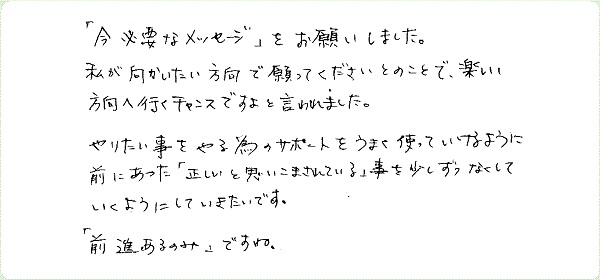 「今必要なメッセージ」をお願いしました。
私が向かいたい方向で願ってくださいとのことで、楽しい
方向へ行くチャンスですよと言われました。
やりたい事をやる為のサポートをうまく使っていけるように
前にあった「正しいと思いこまされている」事を少しずつなくして
いくようにしていきたいです。
「前進あるのみ」ですね。